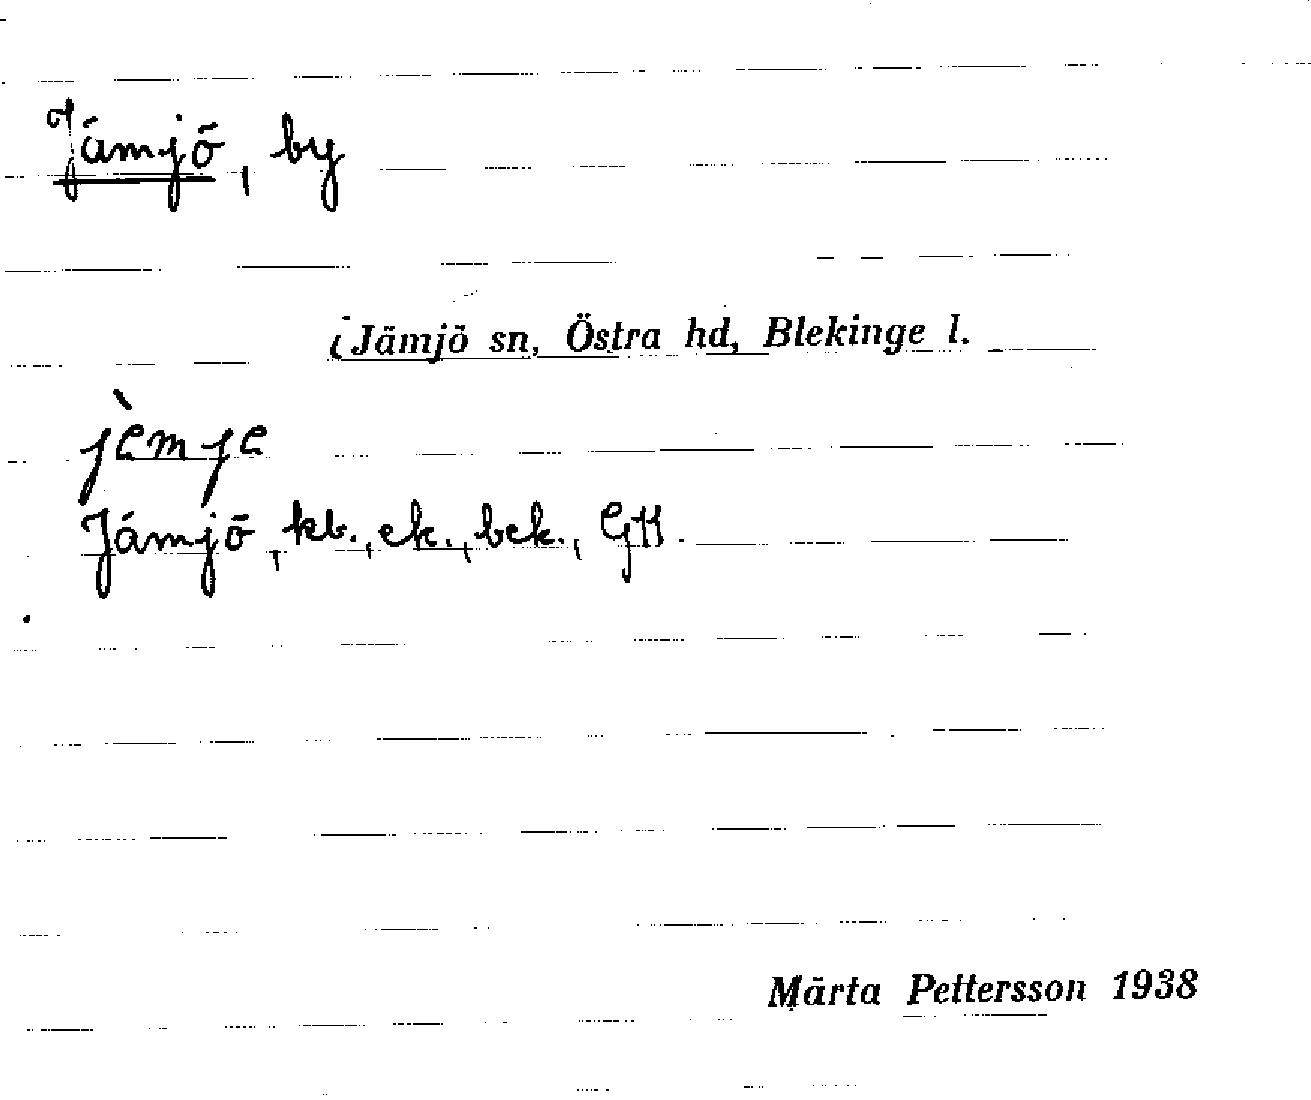 Jämjö, by
i Jämjö sn, Östra hd, Blekinge l.
jèmje
Jämjö, kb., ek., bek., GK.
Märta Pettersson 1938